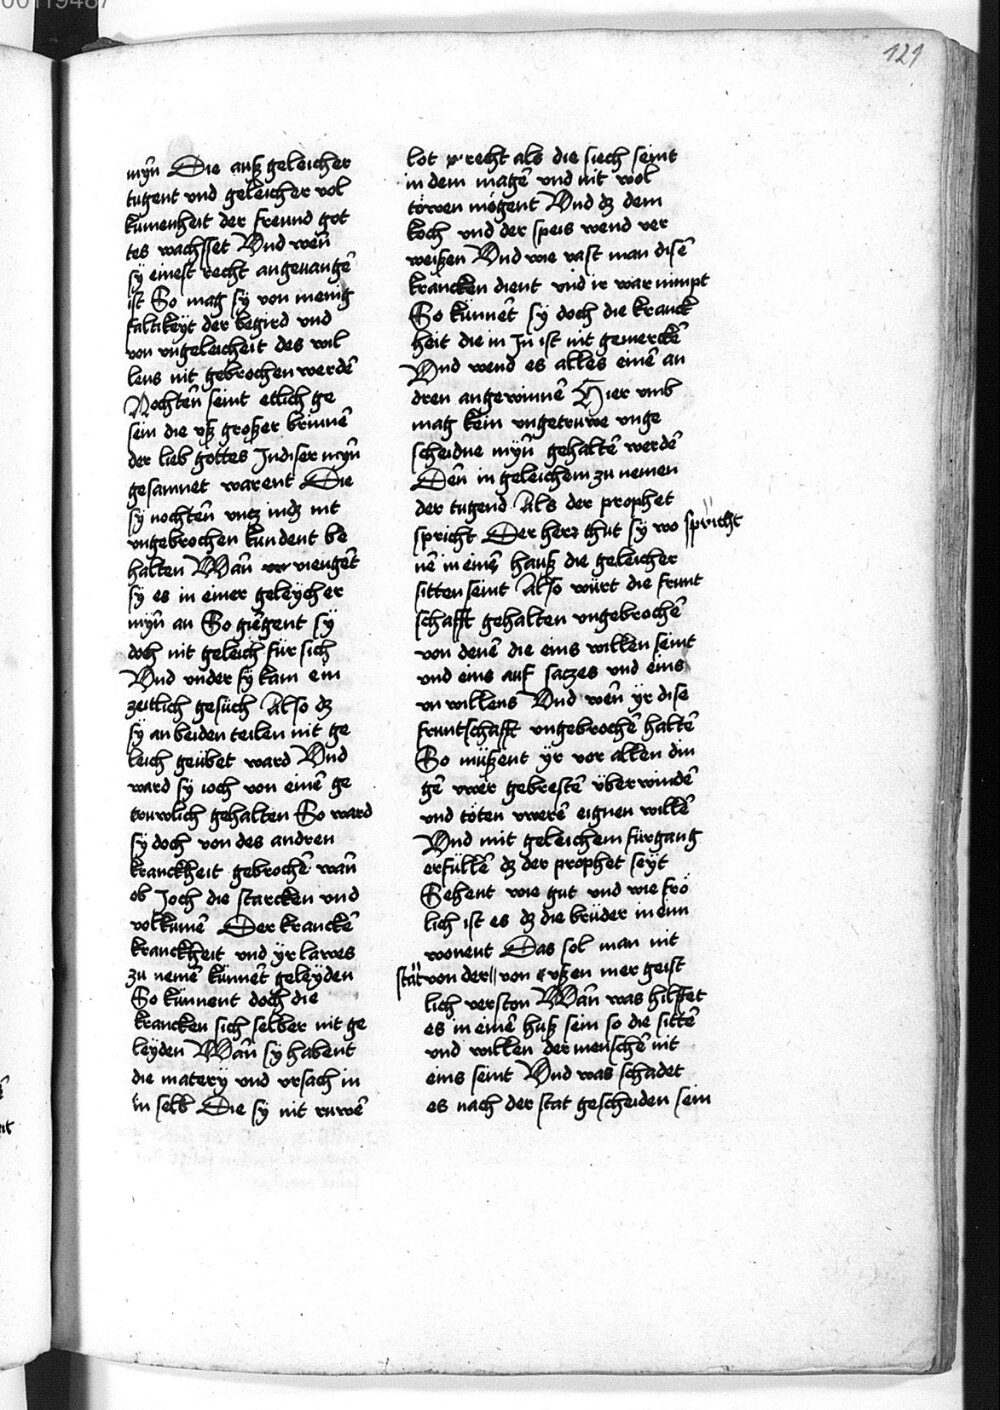 121
mỹn Die auß geleicher
tugent vnd geleicher vol
kumenheit der freund got
tes wachsset Vnd wen̄
sy einest recht angeuangē
ist So mag sy von menig
faltikeyt der begird vnd
von vngeleicheit des wil
lens nit gebrochen werdē
Nochten̄ seint etlich ge
sein die vß großer brinnē
der lieb gottes Jn diser mÿn̄
gesamnet warent Die
sy nochten̄ vntz indz nit
vngebrochen kundent be
halten Wan̄ viengēt
sy es in einer geleycher
mÿn̄ an So giengent sy
doch nit geleich für sich
Vnd vnder sy kam ein
zeitlich gesüch Also dz
sy an beiden teilen nit ge
leich geübet ward Vnd
ward sy ioch von einē ge
truwlich gehalten So ward
sy doch von des andren
kranckheit gebrochē wan̄
ob Joch die starcken vnd
volkumē Der kranckē
kranckheit vnd yr lawes
zu nemē künnēt geleyden
So künnent doch die
krancken sich selber nit ge
leyden Wan̄ sy habent
die matery vnd vrsach in
in selb Die sy nit ruwē
lot recht als die siech seint
in dem magē vnd nit wol
töwen mögent Vnd dz dem
koch vnd der speis wend ver
weißen Vnd wie vast man disē
krancken dient vnd ir war nimpt
So künnēt sy doch die kranck
heit die in Jn ist nit gemerckē
Vnd wend es alles einē an
dren angewinnē Hier vmb
mag kein vngetruwe vnge
scheidne mÿn̄ gehaltē werdē
Den̄ in geleichem zu nemen
der tugend Als der prophet
spricht Der herr thut sy wo spricht
nē in eins hauß die geleicher
sitten seint Also würt die frunt
schafft gehalten vngebrochē
von denē die eins willen seint
vnd eins auf satzes vnd eins
vn willens Vnd wen̄ yr dise
fruntschafft vngebrochē haltē
So müßent yr vor allen din
gē vwer gebrestē überwindē
vnd töten vwerē eignen willē
Vnd mit geleichem fürgang
erfüllē dz der prophet seyt
Sehent wie gut vnd wie frö
lich ist es dz die brüder in ein
wonent Das sol man nit
stat von der von vßen mer geist
lich verston Wan̄ was hilffet
es in einē huß sein so die sittē
vnd willen der menschē nit
eins seint Vnd was schadet
es nach der stat gescheiden sein